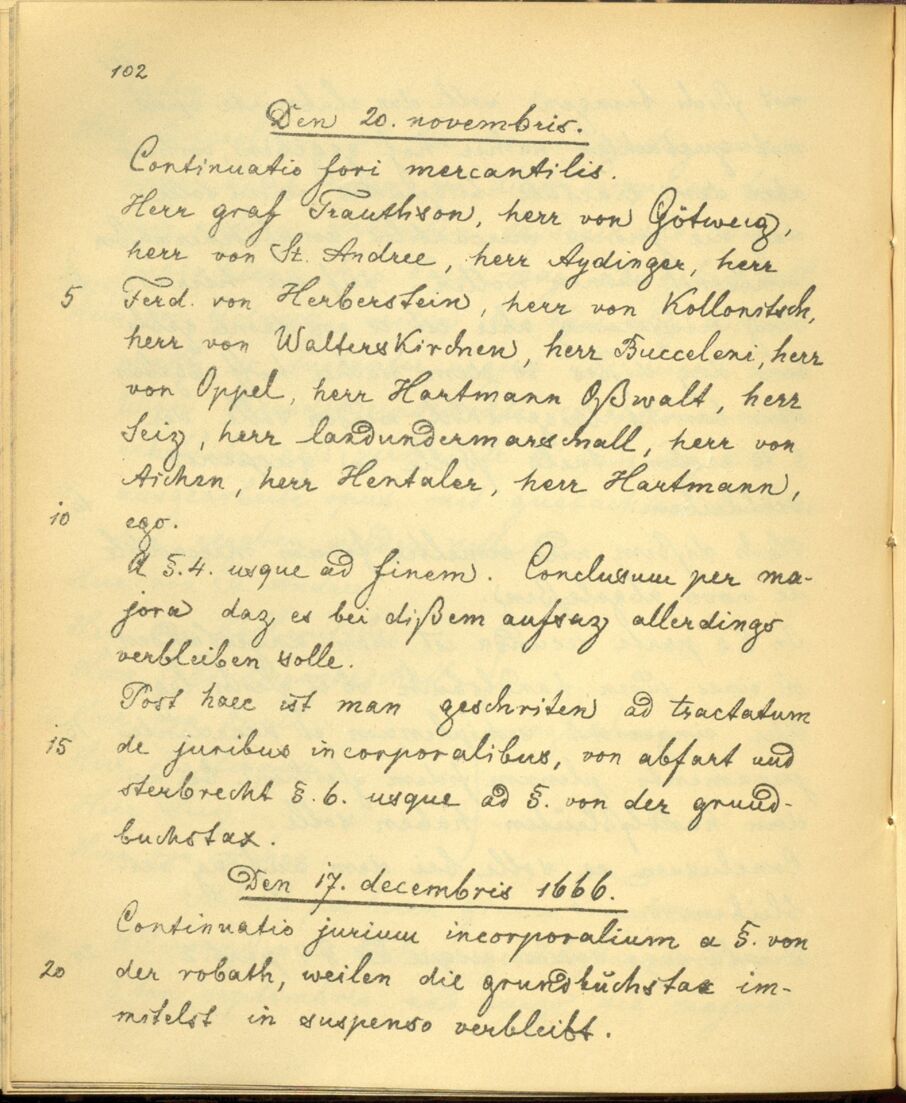 102
Den 20. novembris.
Continuatio fori mercantilis.
Herr graf Trauthson, herr von Götweig,
herr von St. Andree, herr Aydinger, herr
5 Ferd. von Herberstein, herr von Kollonitsch,
herr von Walterskirchen, herr Bucceleni, herr
von Oppel, herr Hartmann Oßwalt, herr
Seiz, herr landundermarschall, herr von
Aichen, herr Hentaler, herr Hartmann,
10 ego.
A §. 4. usque ad finem. Conclusum per ma-
jora daz es bei dißem aufsaz allerdings
verbleiben solle.
Post haec ist man geschriten ad tractatum
15 de juribus incorporalibus, von abfart und
sterbrecht §. 6. usque ad §. von der grund-
buchstax.
Den 17. decembris 1666.
Continuatio jurium incorporalium a §. von
20 der robath, weilen die grundbuchstax im-
mitelst in suspenso verbleibt.